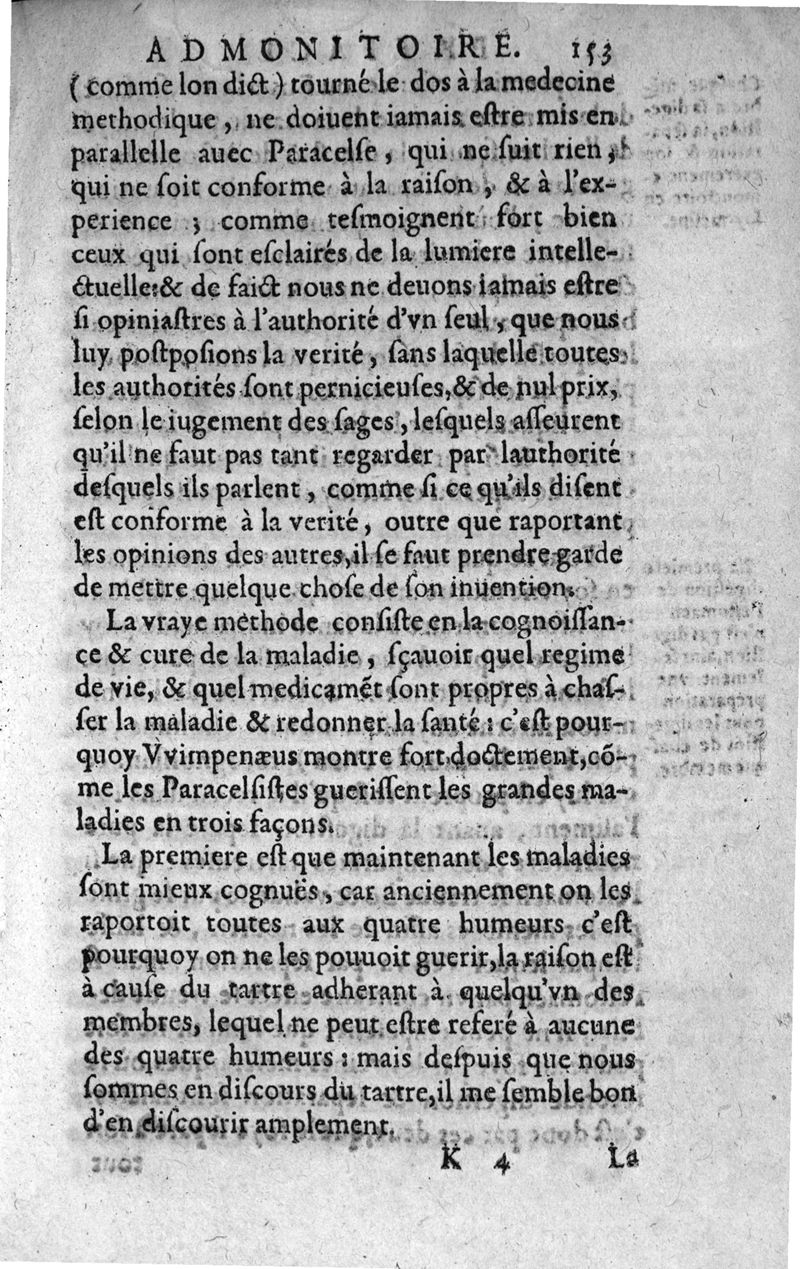 ADMONITOIRE. 153
(comme lon dict) tourné le dos à la medecine
methodique, ne doiuent iamais eſtre mis en
parallelle auec Paracelſe, qui ne ſuit rien,
qui ne ſoit conforme à la raiſon, & à l'ex-
perience ; comme teſmoignent fort bien
ceux qui ſont eſclairés de la lumiere intelle-
ctuelle:& de faict nous ne deuons iamais eſtre
ſi opiniaſtres à l'authorité d'vn ſeul, que nous
luy poſtpoſions la verité, ſans laquelle toutes
les authorités ſont pernicieuſes,& de nul prix,
ſelon le iugement des ſages, leſquels aſſeurent
qu'il ne faut pas tant regarder par lauthorité
deſquels ils parlent, comme ſi ce qu'ils diſent
eſt conforme à la verité, outre que raportant
les opinions des autres,il ſe faut prendre garde
de mettre quelque choſe de ſon inuention.
La vraye methode conſiſte en la cognoiſſan-
ce & cure de la maladie, ſçauoir quel regime
de vie, & quel medicamẽt ſont propres à chaſ-
ſer la maladie & redonner la ſanté : c'eſt pour-
quoy Vvimpenæus montre fort doctement,cõ-
me les Paracelſiſtes gueriſſent les grandes ma-
ladies en trois façons.
La premiere eſt que maintenant les maladies
ſont mieux cognuës, car anciennement on les
raportoit toutes aux quatre humeurs c'eſt
pourquoy on ne les pouuoit guerir,la raiſon eſt
à cauſe du tartre adherant à quelqu'vn des
membres, lequel ne peut eſtre referé à aucune
des quatre humeurs : mais deſpuis que nous
ſommes en diſcours du tartre,il me ſemble bon
d'en diſcourir amplement.
K 4 La